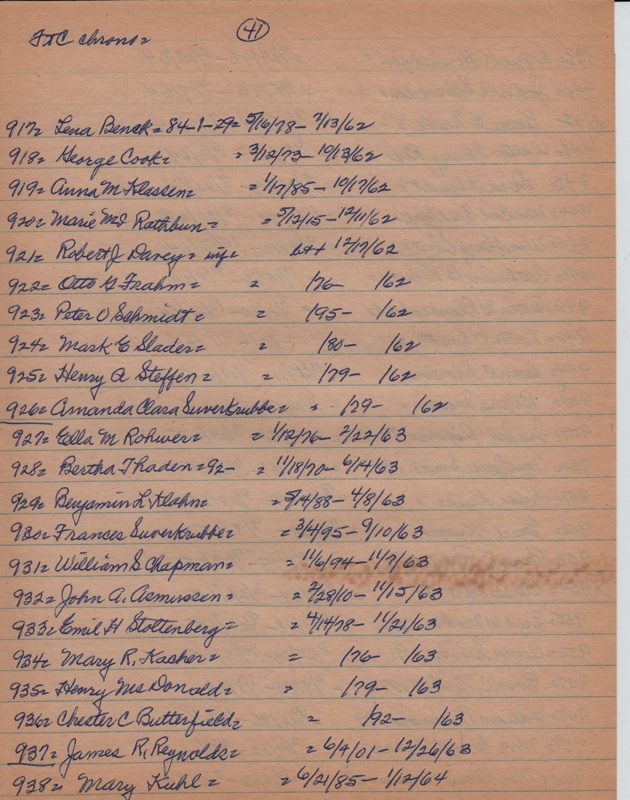 41
FTC chrono=
917= Lena Benck= 84-1-29= 5/16/78- 7/13/62
918= George Cook= = 3/12/73- 10/13/62
919= Anna M Klassen= = 1/17/85- 10/17/62
920= Marie McI Rathbun= = 5/12/15- 12/11/62
921= Robert J Davey= inf= bt+ 12/17/62
922= Otto G Frahm= = /76- /62
923= Peter O Schmidt= = /95- /62
924= Mark E Slader= = /80- /62
925= Henry A Steffen= = /79- /62
926= Amanda Clara Suverkrubbe= = /79- /62
927= Ella M Rohwer= = 1/12/76- 2/22/63
928= Bertha Thaden=92- = 11/18/70- 6/14/63
929= Benjamin L Klahn= = 5/14/88- 4/8/63
930= Frances Suverkrubbe= = 3/4/95- 9/10/63
931= William S Chapman= = 11/6/94- 11/7/63
932= John A. Asmussen= = 2/28/10- 11/15/63
933= Emil H Stoltenberg= = 4/14/78- 11/21/63
934= Mary R. Kasher= = /76- /63
935= Henry McDonald= = /79- /63
936= Chester C Butterfield= = /92- /63
937= James R. Reynolds= = 6/4/01- 12/26/63
938= Mary Kuhl= = 6/21/85- 1/12/64